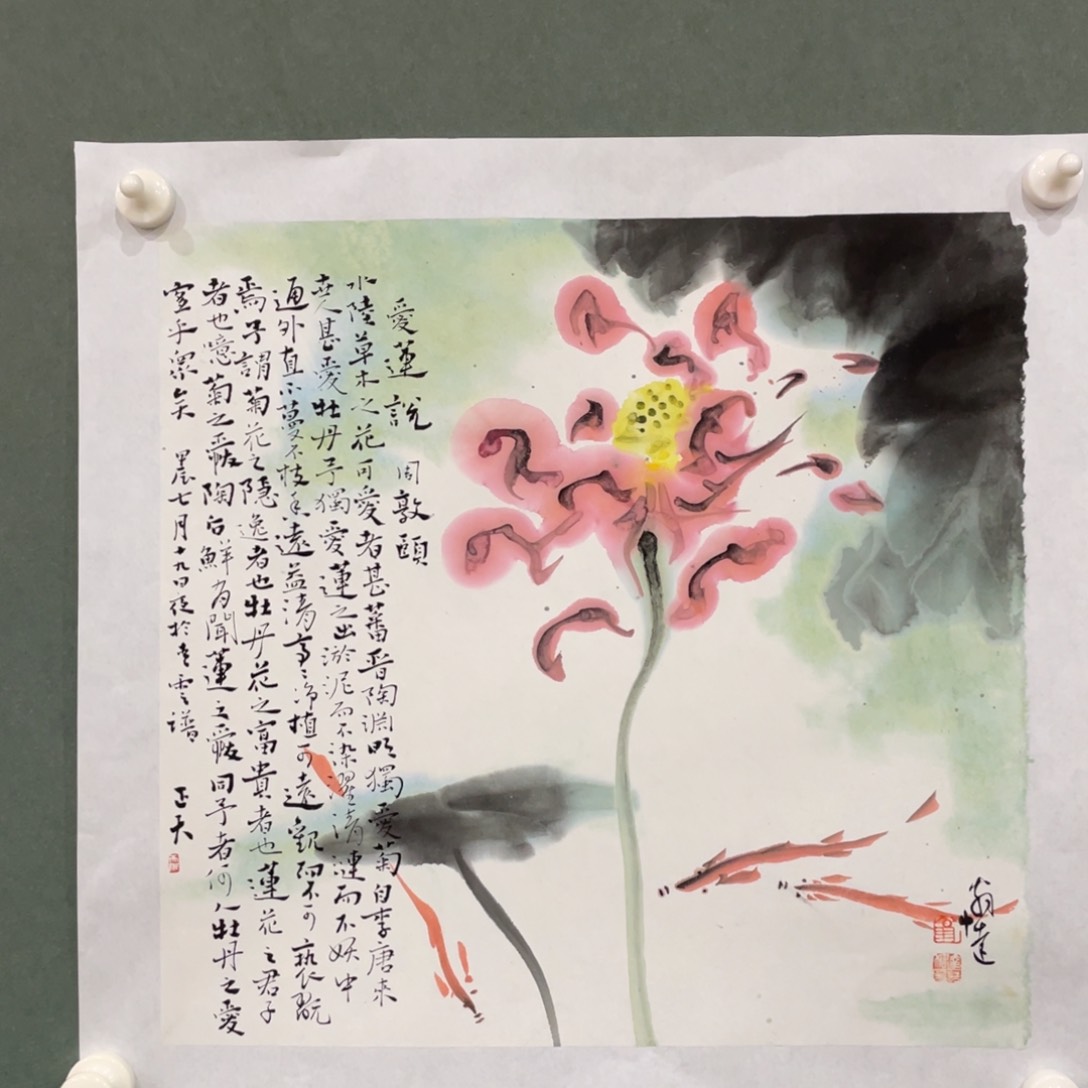 愛蓮說 周敦頤
水陸草木之花可愛者甚蕃晉陶淵明獨愛菊自李唐來
世人甚愛牡丹予獨愛蓮之出淤泥而不染濯清漣而不妖中
通外直不蔓不枝香遠益清亭〻淨植可遠觀而不可褻翫
焉予謂菊花之隱逸者也牡丹花之富貴者也蓮花之君子
者也噫菊之愛陶后鮮有聞蓮之愛同予者何人牡丹之愛
宜乎眾矣 七月十九日 於青雲譜 正天